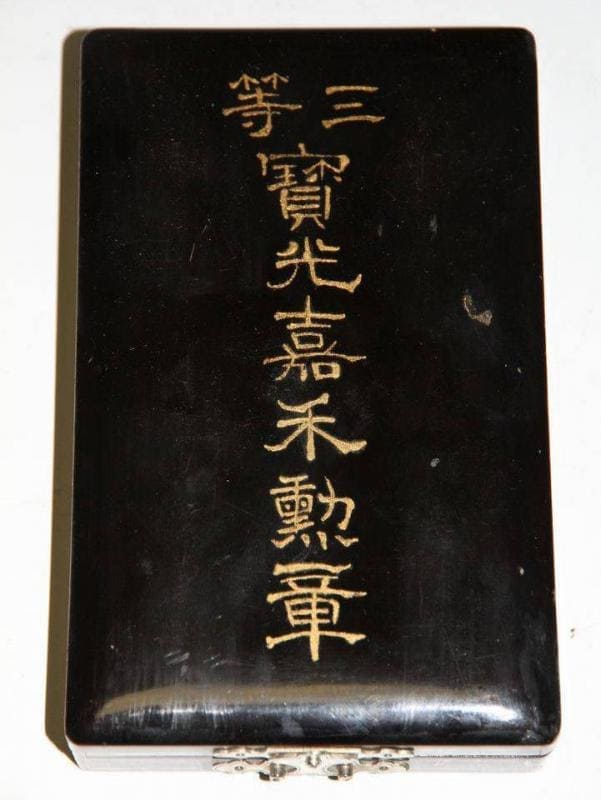 三等
寶光嘉禾勳章